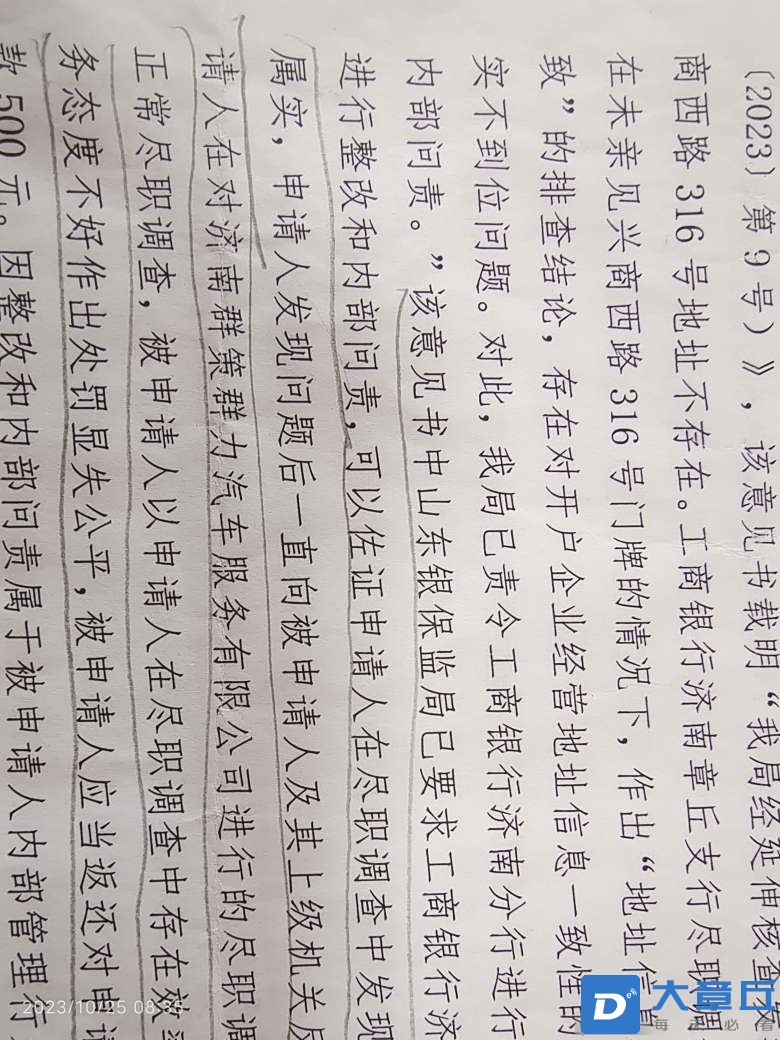 （2023）第 9 号）》，该意见书载明“我局经延伸核查发
商西路 316 号地址不存在。工商银行济南章丘支行尽职调
在未亲见兴商西路 316 号门牌的情况下，作出“地址信息
致”的排查结论，存在对开户企业经营地址信息一致性的
实不到位问题。对此，我局已责令工商银行济南分行进行
内部问责。”该意见书中山东银保监局已要求工商银行济
进行整改和内部问责，可以佐证申请人在尽职调查中发现
属实，申请人发现问题后一直向被申请人及其上级机关反
请人在对济南群策群力汽车服务有限公司进行的尽职调
正常尽职调查，被申请人以申请人在尽职调查中存在效率
务态度不好作出处罚显失公平，被申请人应当返还对申请
款 500 元。因整改和内部问责属于被申请人内部管理行
2023/10/25 08:35
D
大章丘
每 必 看